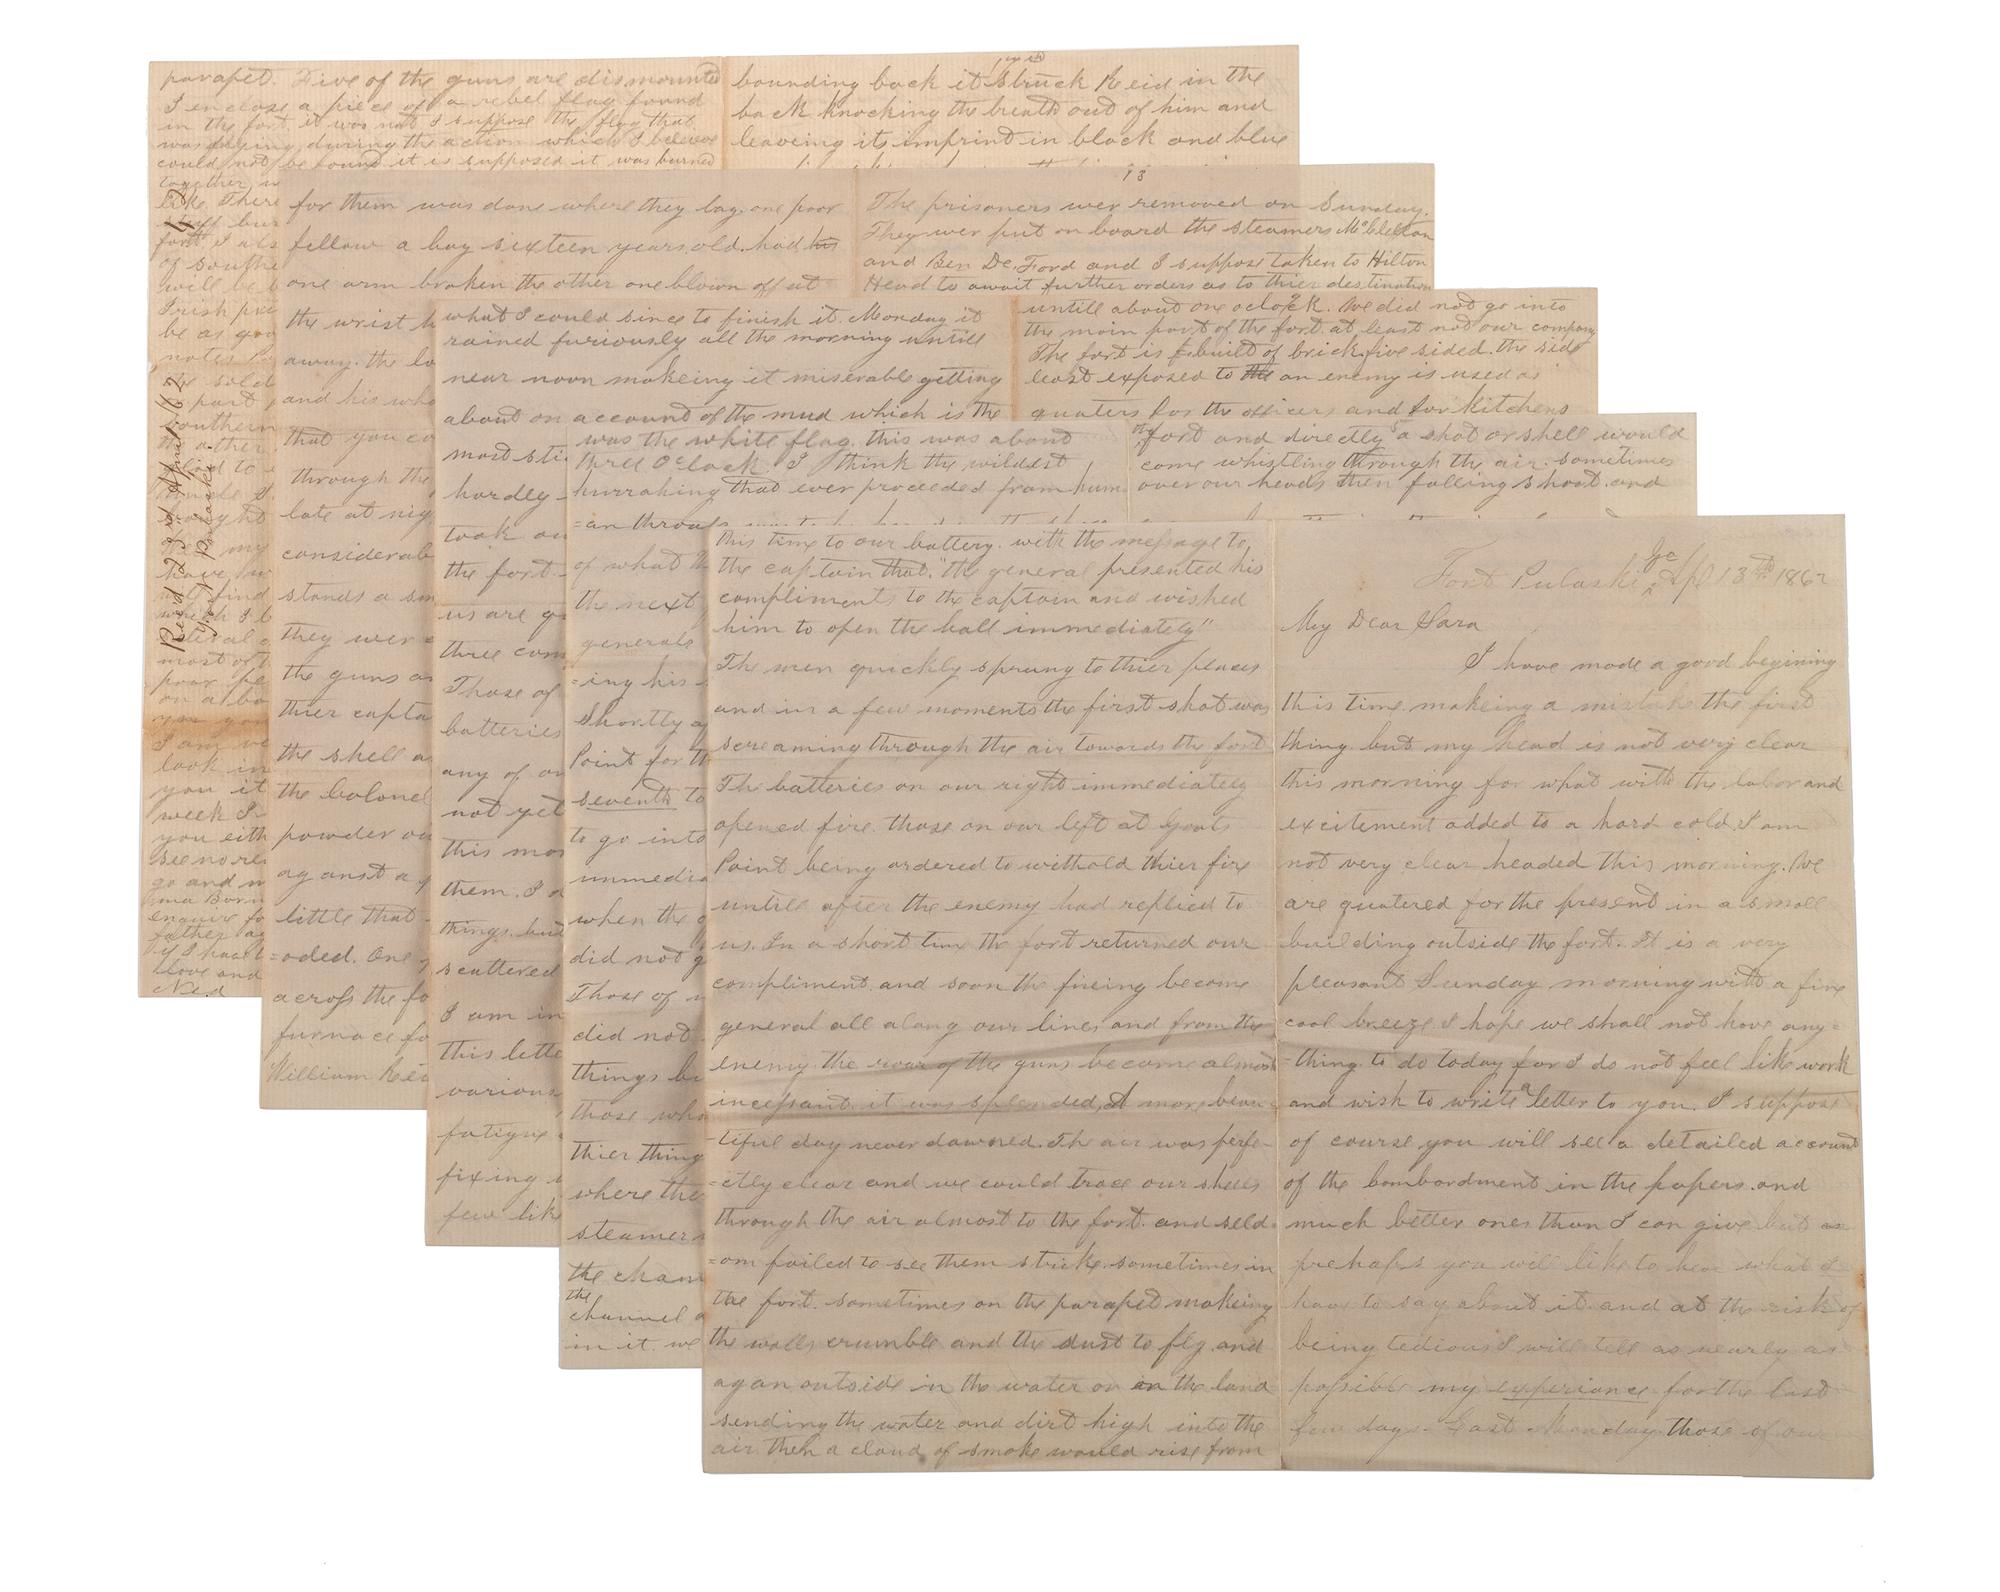 Fort Pulaski Ga Apl 13th 1862
My Dear Sara
I have made a good begining
this time makeing a mistake the first
thing. but my head is not very clear
this morning for what with the labor and
excitement added to a hard cold I am
not very clear headed this morning. We
are quatered for the present in a small
building outside the fort. It is a very
pleasant Sunday morning with a fine
cool breeze I hope we shall not have any=
=thing to do today for I do not feel like work
and wish to write a letter to you. I suppose
of course you will see a detailed account
of the bombardment in the papers. and
much better ones than I can give but as
prehaps you will like to hear what I
have to say about it. and at the risk of
being tedious I will tell as nearly as
possible my experiance for the last
few days. Last Monday those of our
this time to our battery. with the message to,
the captain that. "the general presented his
compliments to the captain and wished
him to open the ball immediately"
The men quickly sprung to thier places
and in a few moments the first shot was
screaming through the air towards the fort
The batteries on our right immediately
opened fire. those on our left at Goats
Point being ordered to withold thier fire
untill after the enemy had replied to
us. In a short time the fort returned our
compliment. and soon the fireing became
general all along our lines and from the
enemy. the roar of the guns became almost
incessant. it was splended, A more beau=
=tiful day never dawned. The air was perfe-
=ctly clear and we could trace our shells
through the air almost to the fort. and seld=
=om failed to see them strike. sometimes in
the fort. sometimes on the parapet makeing
the walls crumble and the dust to fly. and
agan outside in the water or in the land
sending the water and dirt high into the
air then a cloud of smoke would rise from
the fort and directly a shot or shell would
come whistling through the air. sometimes
over our heads then falling short. and
was the white flag. this was about
three Oclock. I think the wildest
hurrahing that ever proceeded from hum
=an throa
of what th
the next
generals
=ing his
Shortly a
Point for th
seventh to
to go into
immedia
when the g
did not g
Those of
did not
things b
those who
thier thing
where the
steamer
the chan
the
channel a
in it. we
untill about one oclock. We did not go into
the main part of the fort. at least not our company
The fort is built of brick. five sided. the side
least exposed to the an enemy is used as
quaters for the officers and for kitchens
what I could since to finish it. Monday it
rained furiously all the morning untill
near noon makeing it miserable getting
about on account of the mud which is the
most sti
hardly
took ou
the fort
us are q
three com
Those of
batteries
any of ou
not yet
this mor
them. I
things. but
scattered
I am in
this lette
various
fatigue
fixing
few lik
13
The prisoners wer removed on Sunday.
They wer put on board the steamers McClellan
and Ben De.Ford and I suppose taken to Hilton
Head to await further orders as to thier destination
for them was done where they lay. one poor
fellow a boy sixteen years old. had his
one arm broken the other one blown off at
the wrist h
away. the lo
and his who
that you co
through the
late at nig
considerab
stands a sm
they wer
the guns a
thier capta
the shell a
the Colonel
powder ou
aganst a
little that
=oded. One
across the fo
furnace fo
William Rei
bounding back it struck Reid in the
back knocking the breath out of him and
leaveing its imprint in black and blue
parapet. Five of the guns are dismounted
I enclose a piece of a rebel flag found
in the fort. it was not I suppose the flag that
was flying during the action which I believe
could not be found it is supposed it was burned
together w
like. There
stuff bur
fort. I als
of southe
will be
Irish pri
be as goo
notes
sold
part
southern
the other
my
have
find
which I b
several
most of
poor pe
on a bo
I am ve
look in
you it
week I
you eith
see no re
go and
ma Born
enquire fo
father a
if I have
love and
Ned
Rec'd 21st April /62
42
Ft. Pulaski